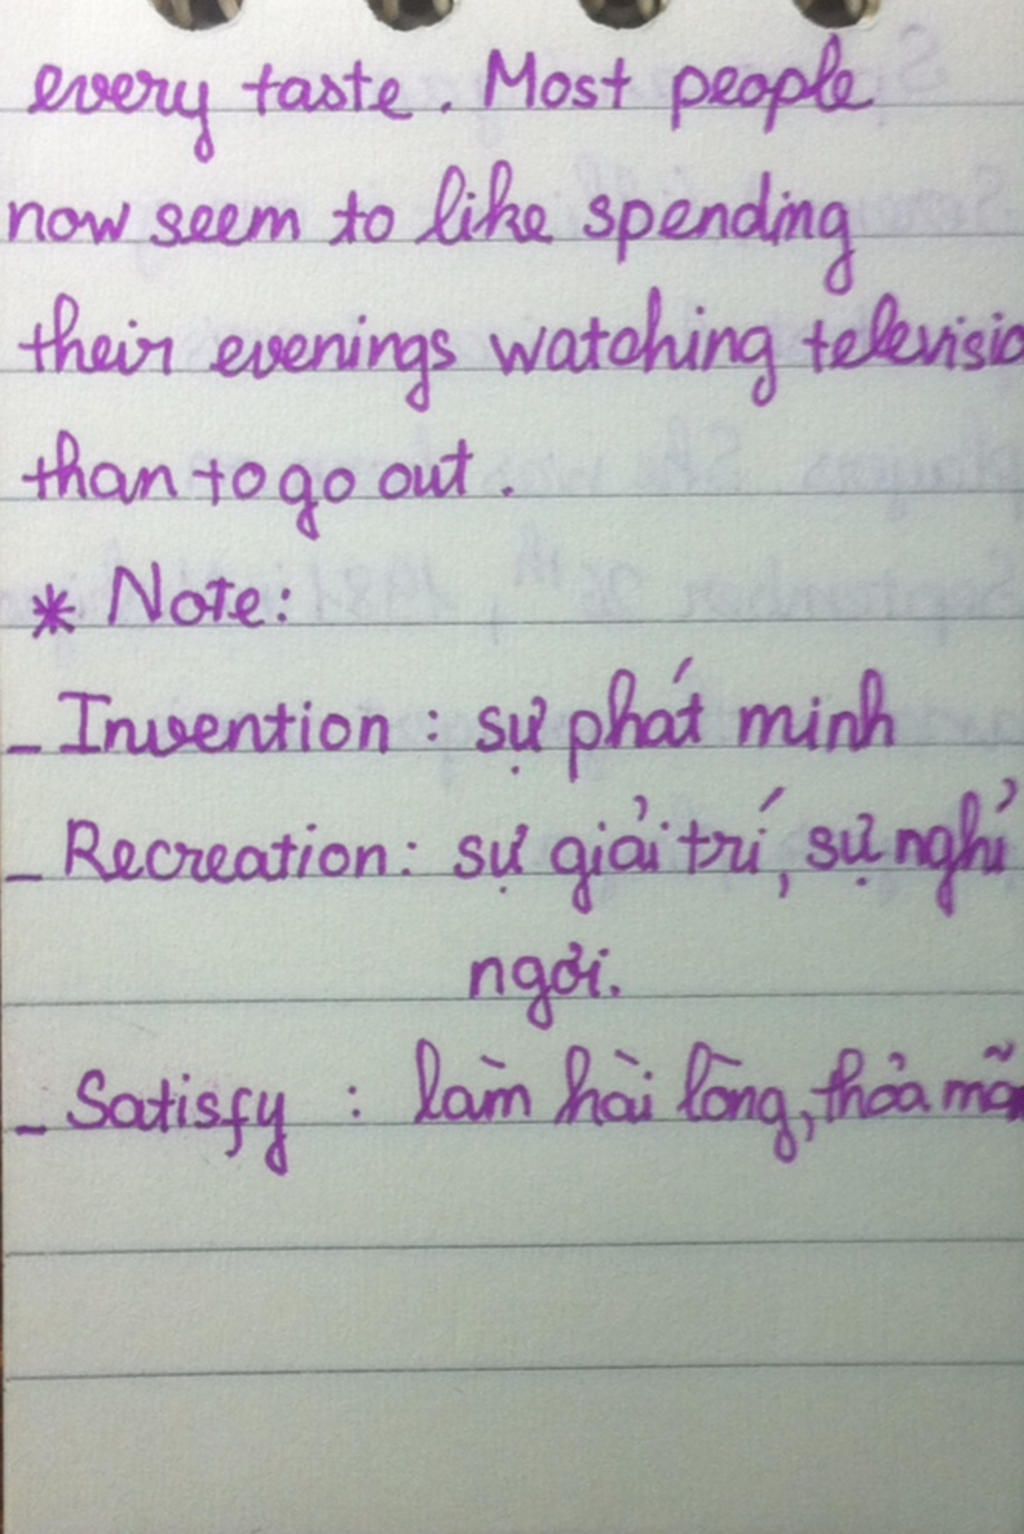 every taste. Most people
now seem to like spending
their evenings watching televisio
than to go out.
* Note:
- Invention : sự phát minh
- Recreation : sự giải trí, sự nghỉ
ngơi.
- Satisfy : làm hài lòng, thỏa mãn